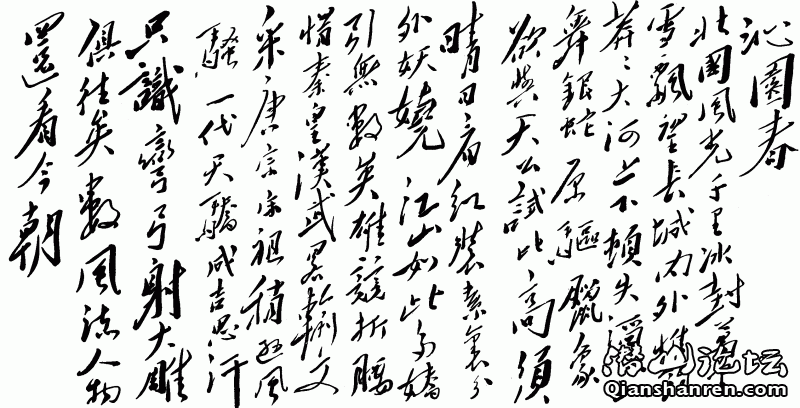 沁園春
北國風光千里冰封萬
雪飄望長城内外
莽々大河上下頓失滔
舞銀蛇原驅臘象
欲與天公試比高須
晴日看紅裝素裹分
外妖嬈江山如此多嬌
引無數英雄競折腰
惜秦皇漢武略輸文
采唐宗宋祖稍遜風
騷一代天驕成吉思汗
只識彎弓射大雕
俱往矣數風流人物
還看今朝
潜山论坛
Qianshanren.com